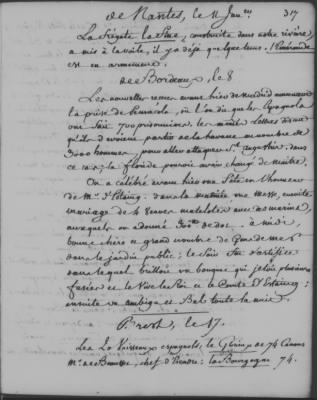 de Nantes, le 11 Janer. 317
La frégate la fine, construite dans notre rivière,
a mis à la voile, il y a déjà quelque tems. l'Émeraude
est en armement.
de Bordeaux, le 8
Les nouvelles reçues avant hier de Madrid annoncent
la prise de Pensacola, où l'on dit que les Espagnols
ont fait 700 prisonniers. les mêmes Lettres disent
qu'ils devoient partir de la havane au nombre de
3000 hommes, pour aller attaquer St. augustin. dans
ce cas, la floride pouvoit avoir changé de maître.
On a célébré avant hier une fête en l'honneur
de Mr. d'Estaing. dans la matinée une messe, ensuite
mariage de 4 jeunes matelots avec
auxquels on a donné de dot. à midi,
bonne chère et grand nombre de
dans le jardin public; le soir feu d'artifice
dans lequel brilloit un bouquet qui jetoit plusieurs
fusées et le Vive le Roi et le Comte d'Estaing:
ensuite un ambigu et Bal toute la nuit.
Brest, le 17.
Les 2 Vaisseaux espagnols, le de 74 Canons
Mr. de Bausset, chef d'Escadre; la Bourgogne 74.